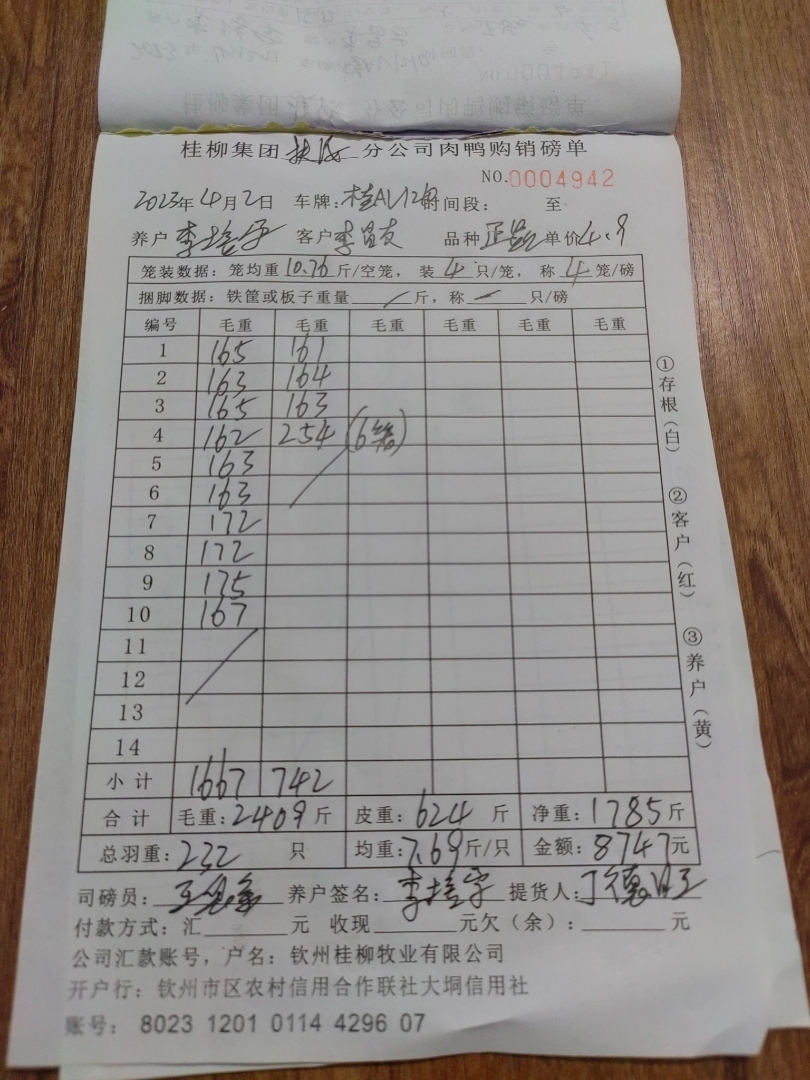 桂柳集团 分公司肉鸭购销磅单
NO.0004942
2023年4月2日 车牌: 时间段: 至
养户 李培宇 客户 李昌友 品种 单价4.9
笼装数据: 笼均重10.76斤/空笼, 装4只/笼, 称4笼/磅
捆脚数据: 铁筐或板子重量/斤, 称/只/磅
编号 毛重 毛重 毛重 毛重 毛重 毛重
1 165 161
2 163 164
3 165 163
4 162 254 (6笼)
5 163
6 163
7 172
8 172
9 175
10 167
11
12
13
14
小计 1667 742
合计 毛重:2409斤 皮重:624斤 净重:1785斤
总羽重:232只 均重:7.69斤/只 金额:8747元
司磅员: 养户签名:李培宇 提货人:
付款方式: 汇 元 收现 元欠(余): 元
公司汇款账号, 户名: 钦州桂柳牧业有限公司
开户行: 钦州市区农村信用合作联社大垌信用社
账号: 8023 1201 0114 4296 07
①存根(白)
②客户(红)
③养户(黄)